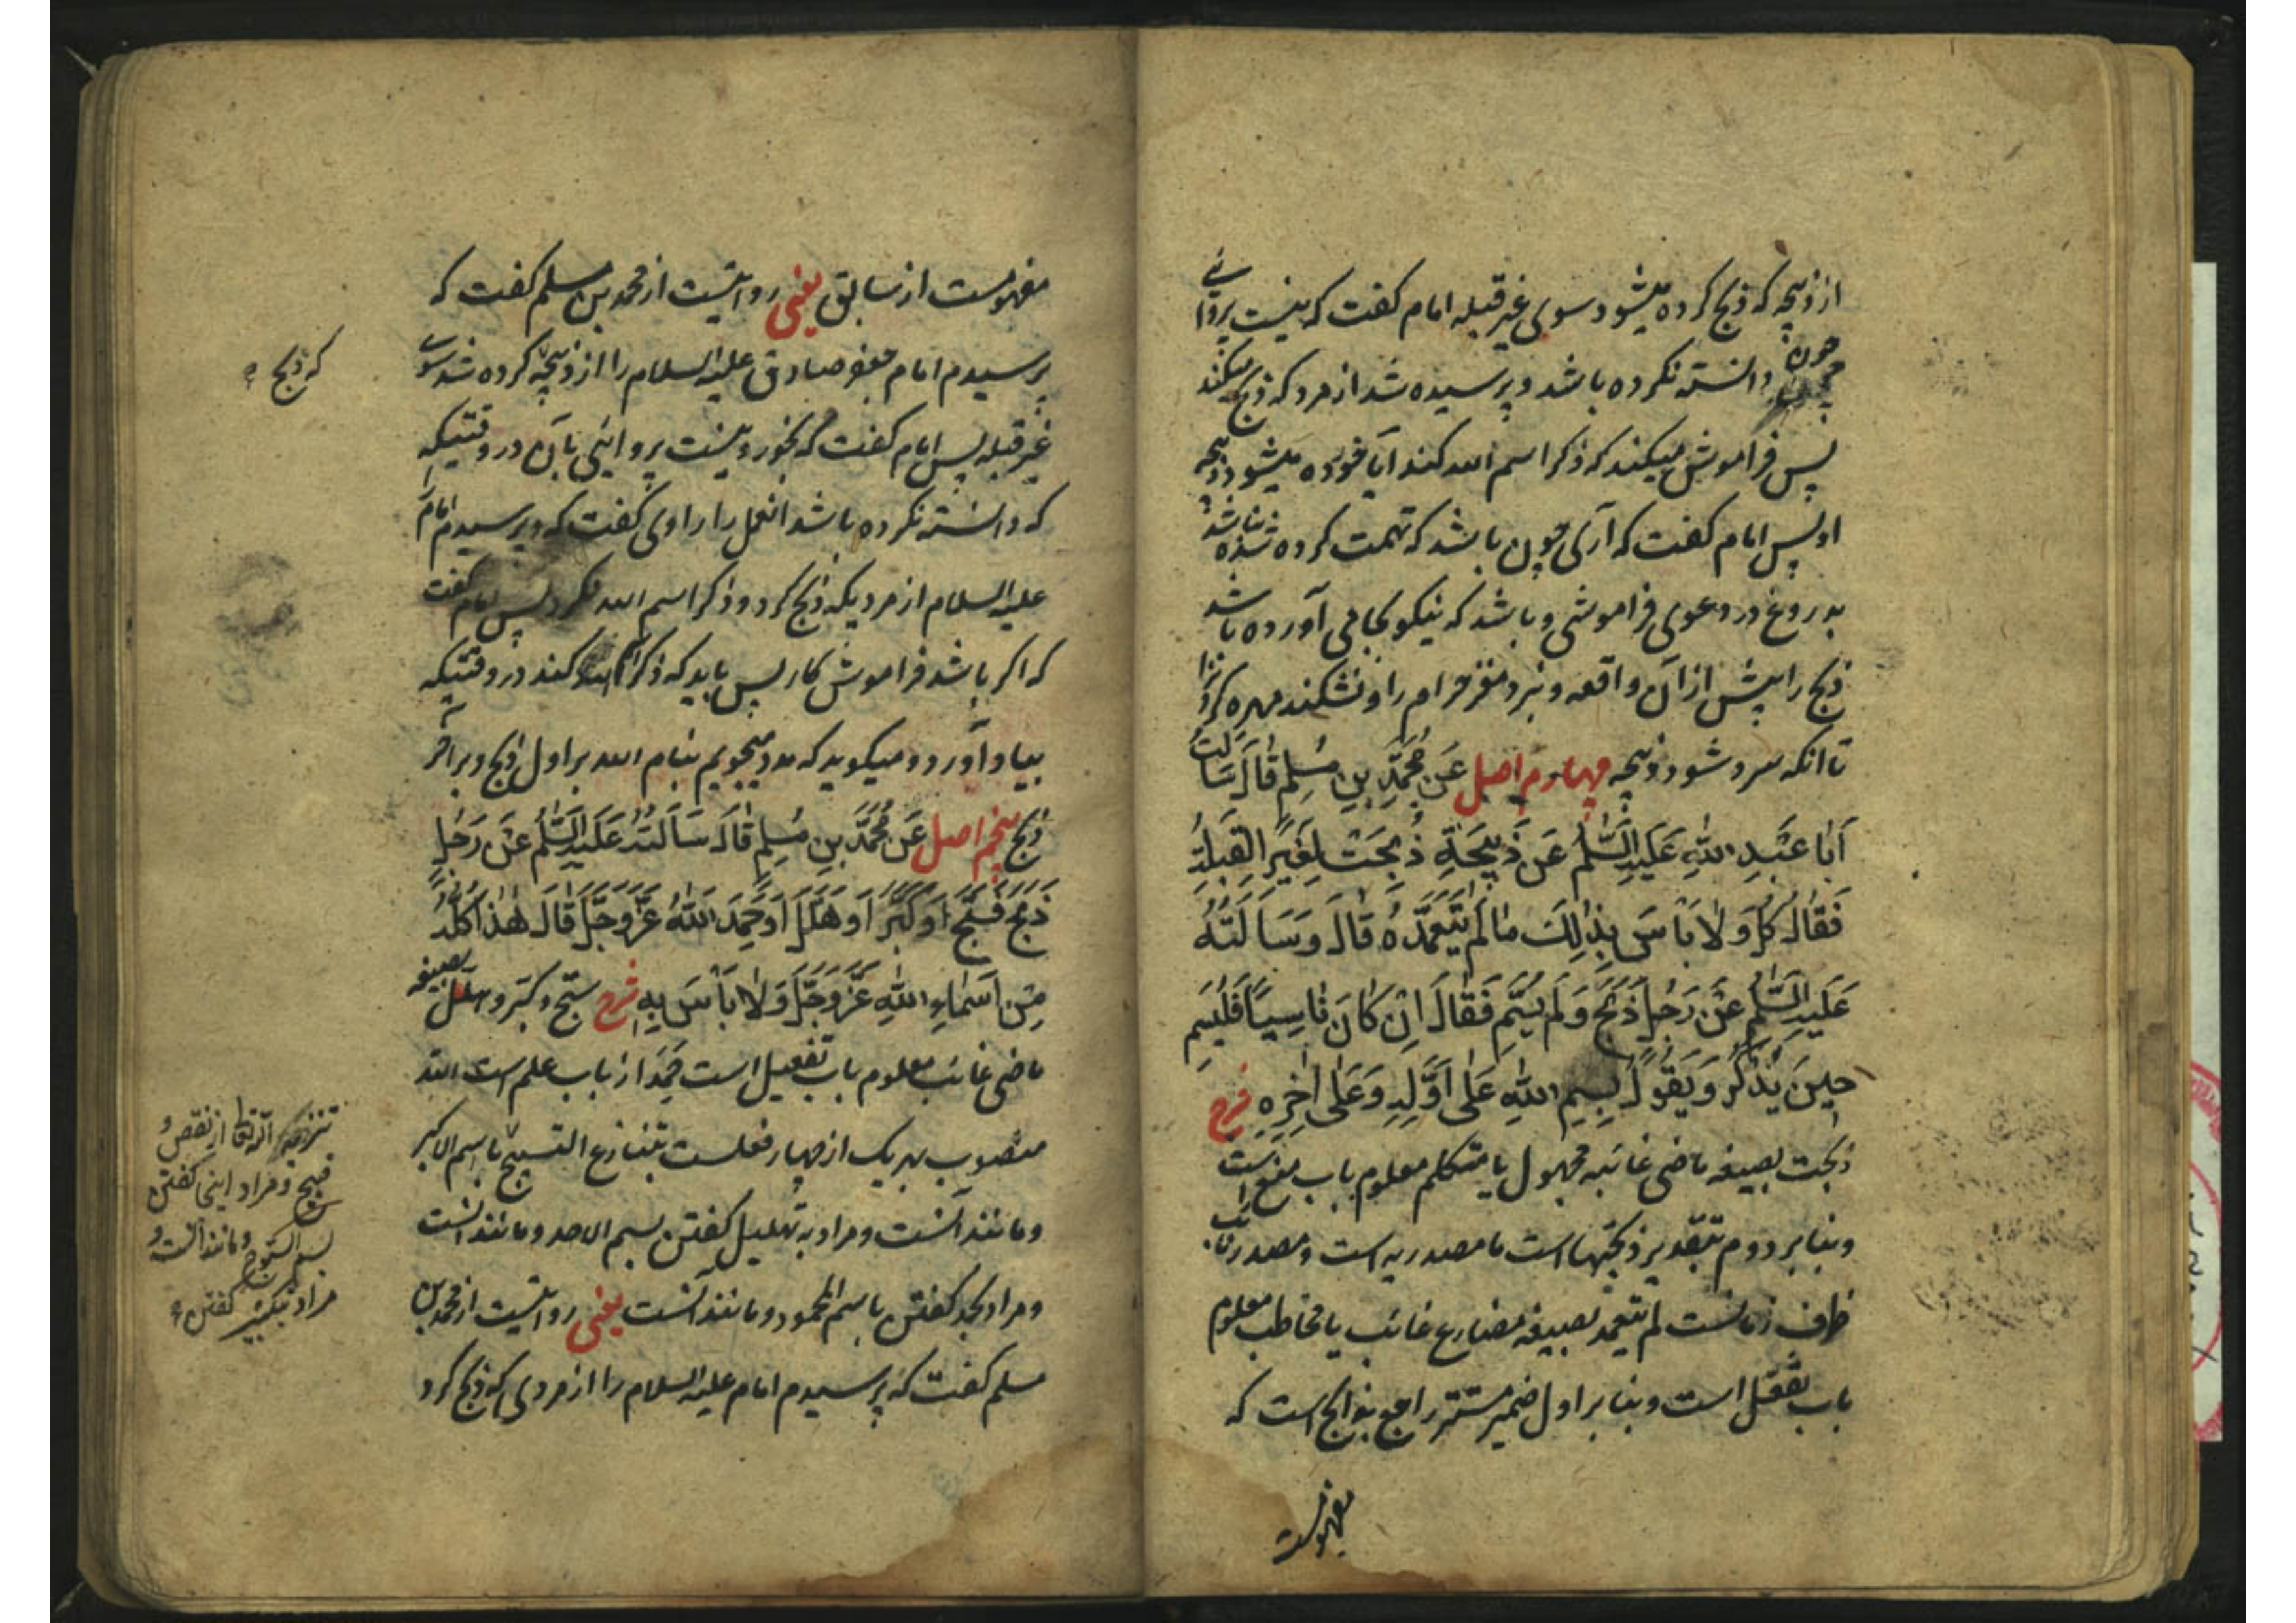 از ذبیحه که ذبح کرده میشود سوی غیر قبله امام گفت که نیست پروائی
چون دانسته نکرده باشد و پرسیده شد از مرد که ذبح میکند
پس فراموش میکند که ذکر اسم الله کند آیا خورده میشود ذبیحه
او پس امام گفت که آری چون باشد که تهمت کرده شده نباشد
بدروغ در دعوی فراموشی و باشد که نیکو بجا می آورده باشد
ذبح را پیش از آن واقعه و نبرد مغز حرام را و نشکند مهره گردنرا
تا آنکه سرد شود ذبیحه چهارم اصل عَن مُحَمَّدِ بنِ مُسلِمٍ قَالَ سَاَلتُ
اَبَا عَبدِ اللّٰهِ عَلَیهِ السَّلَمُ عَن ذَبِیحَةٍ ذُبِحَت لِغَیرِ القِبلَةِ
فَقَالَ کُل وَ لَا بَاْسَ بِذٰلِكَ مَا لَم یَتَعَمَّدهُ قَالَ وَ سَاَلتُهُ
عَلَیهِ السَّلَمُ عَن رَجُلٍ ذَبَحَ وَ لَم یُسَمِّ فَقَالَ اِن کَانَ نَاسِیًا فَلیُسَمِّ
حِینَ یَذکُرُ وَ یَقُولُ بِسمِ اللّٰهِ عَلٰی اَوَّلِهِ وَ عَلٰی اٰخِرِهِ شرح
ذبحت بصیغه ماضی غائبه مجهول یا متکلم معلوم باب منع است
و بنابر دوم بتقدیر ذبحتها است ما مصدریه است و مصدر نائب
ظرف زمانست لم یتعمد بصیغه مضارع غائب یا مخاطب معلوم
باب تفعّل است و بنابر اول ضمیر مستتر راجع بذابح است که
مفهومست
مفهومست از سابق یعنی روایتست از محمد بن مسلم گفت که
پرسیدم امام جعفر صادق علیه السلام را از ذبیحه کرده شد سوی
که ذبح
غیر قبله پس امام گفت که بخور و نیست پروائی بآن در وقتیکه
که دانسته نکرده باشد انعمل را راوی گفت که و پرسیدم امام
علیه السلام از مردیکه ذبح کرد و ذکر اسم الله نکرد پس امام گفت
که اگر باشد فراموش کار پس باید که ذکر الله کند در وقتیکه
بیاد آورد و میگوید که مدد میجویم بنام الله بر اول ذبح و بر آخر
ذبح پنجم اصل عَن مُحَمَّدِ بنِ مُسلِمٍ قَالَ سَاَلتُهُ عَلَیهِ السَّلَمُ عَن رَجُلٍ
ذَبَحَ فَسَبَّحَ اَو کَبَّرَ اَو هَلَّلَ اَو حَمِدَ اللّٰهَ عَزَّ وَ جَلَّ قَالَ هٰذَا کُلُّهُ
مِن اَسمَاءِ اللّٰهِ عَزَّ وَ جَلَّ وَ لَا بَاْسَ بِهِ شرح سبّح و کبّر و هلّل بصیغه
ماضی غائب معلوم باب تفعیل است حَمِدَ از باب علم است الله
منصوب بهریک از چهار فعلست بتنازع التسبیح باسم الاکبر
و مانند آنست و مراد به تهلیل گفتن بسم الاحد و مانند آنست
و مراد بحمد گفتن باسم المحمود و مانند آنست یعنی روایتست از محمد بن
مسلم گفت که پرسیدم امام علیه السلام را از مردی که ذبح کرد
از نقص و
قبیح و مراد اینجا گفتن
بسم السبوح و مانند آنست و
مراد بتکبیر گفتن